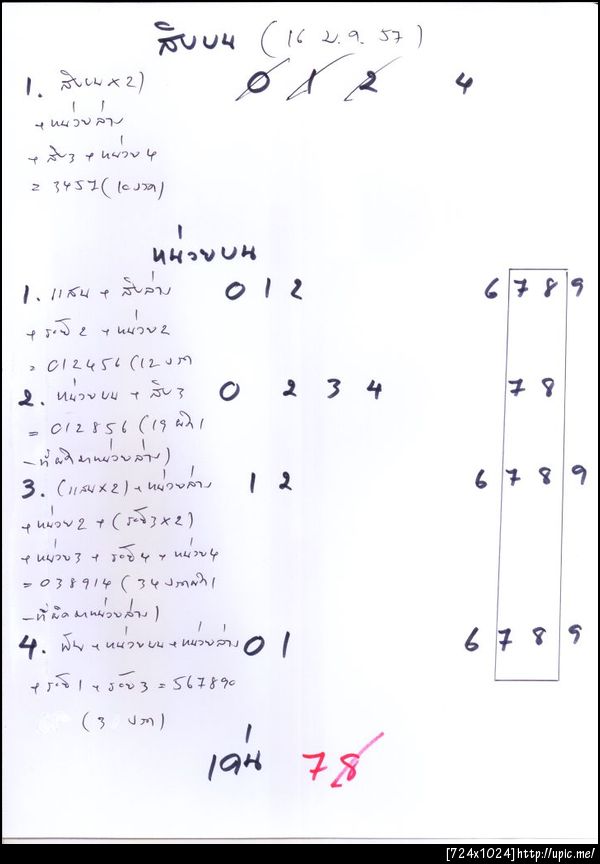 สิบบน (16 ม.ค. 57)
1. สิบบน x 2) 0 1 2 4
+ หน่วยล่าง
+ สิบ3 + หน่วย4
= 3457 (10 งวด)
หน่วยบน
1. แสน + สิบล่าง 0 1 2 6 7 8 9
+ ร้อย 2 + หน่วย2
= 012456 (12 งวด
2. หน่วยบน + สิบ 3 0 2 3 4 7 8
= 012856 (19
- ที่ผิดมาหน่วยล่าง)
3. (แสน x 2) + หน่วยล่าง 1 2 6 7 8 9
+ หน่วย2 + (ร้อย3 x 2)
+ หน่วย3 + ร้อย4 + หน่วย4
= 038914 (34
- ที่ผิดมาหน่วยล่าง)
4. พัน + หน่วยบน + หน่วยล่าง 0 1 6 7 8 9
+ ร้อย1 + ร้อย3 = 567890
(3 งวด)
เด่น 7 8
[724x1024]http://upic.me/